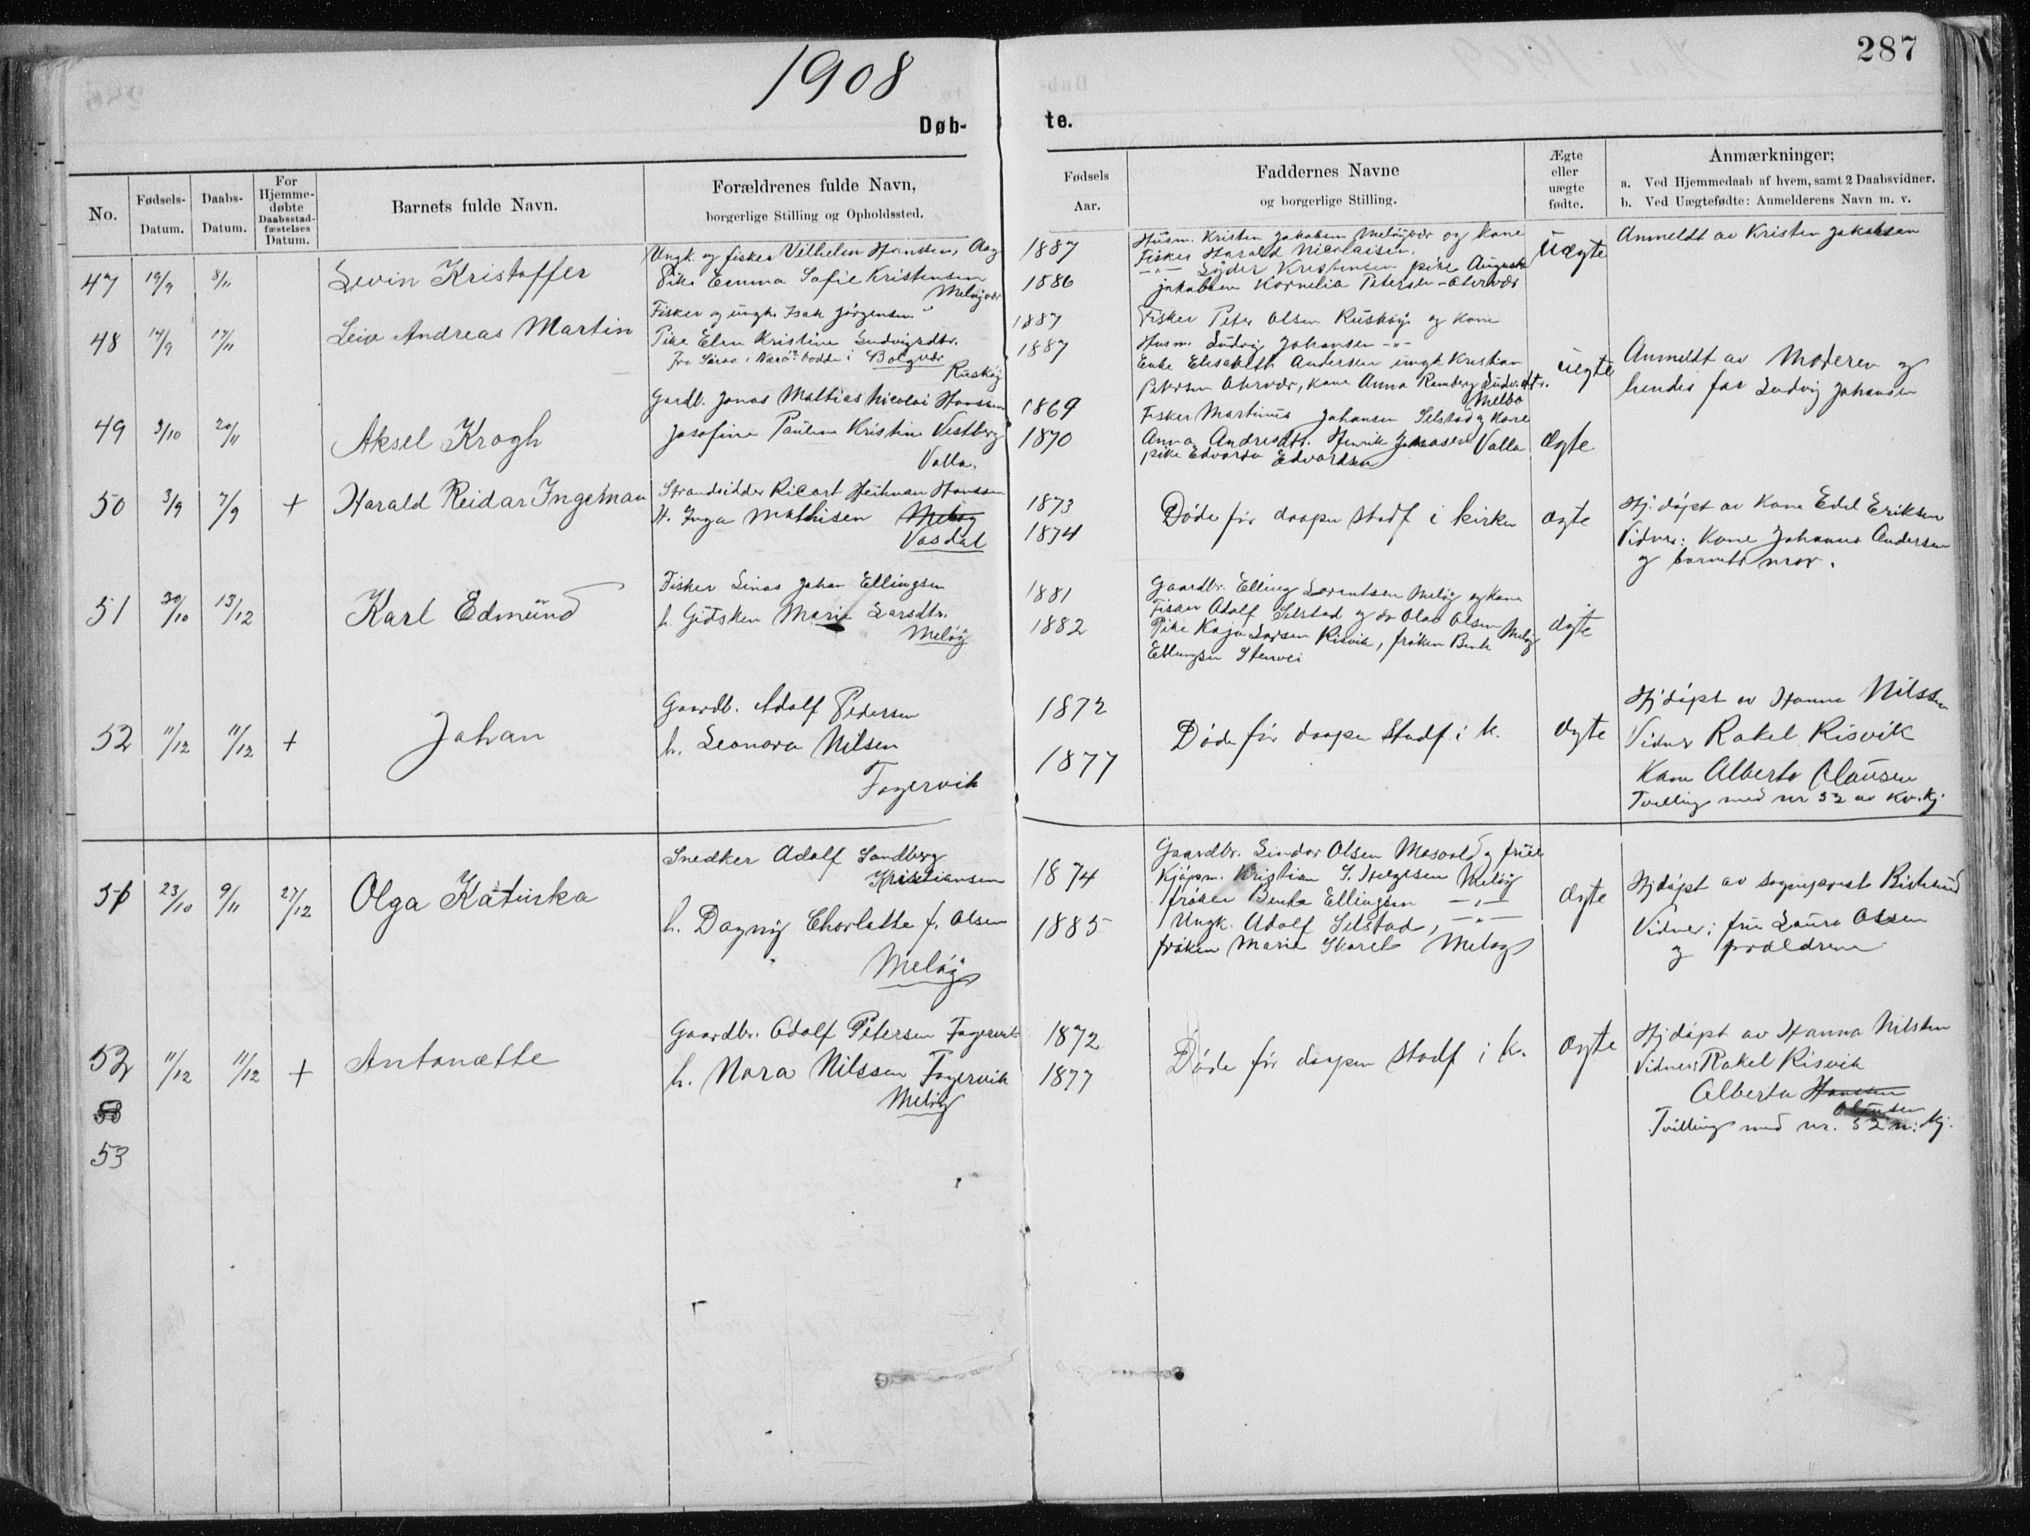 1908
287
Døb-
te.
No.
Fødsels-
Datum.
Daabs-
Datum.
For
Hjemme-
døbte
Daabsstad-
fæstelses
Datum.
Barnets fulde Navn.
Forældrenes fulde Navn,
borgerlige Stilling og Opholdssted.
Fødsels
Aar.
Faddernes Navne
og borgerlige Stilling.
Ægte
eller
uægte
fødte.
Anmærkninger:
a. Ved Hjemmedaab af hvem, samt 2 Daabsvidner.
b. Ved Uægtefødte: Anmelderens Navn m. v.
47 19/9 8/11 Levin Kristoffer
Ungk. og fisker Vilhelm Hansen,
Pike Emma Sofie Kristensen
Meløyvær
1887
1886
Husm. Kristen Jakobsen Meløyvær og kone
Fisker Harald Nicolaisen.
-"- Kristensen pike
Jakobsen Kornelia Petersen
uægte
Anmeldt av Kristen Jakobsen
48 14/9 17/11 Leiv Andreas Martin
Fisker og ungk. Isak Jørgensen
Pike Elen Kristine Ludvigsdtr.
Bolgvær
Ruskøy
1887
1887
Fisker Peter Olsen Ruskøy og kone
Husm. Ludvig Johansen -"-
Enke Elisabeth Andersen ungk. Kristian
Petersen Otervær, kone Anna Ramberg
Melbo
uægte
Anmeldt av Moderen og
hendes far Ludvig Johansen
49 3/10 20/11 Aksel Krogh
Gardb. Jonas Mattias Nicolai Hansen
Josefine Pauline Kristine Vestberg
Valla.
1869
1870
Fisker Martinus Johansen Selstad og kone
Anna Andersdtr. Henrik Valla
pike Edvarda Edvardsen
ægte
50 3/9 7/9 + Harald Reidar Ingeman
Strandsidder Rikart Heitman Hansen
H. Inga Mathisen Meløy
Vasdal
1873
1874
Døde før daapen stadf i kirken
ægte
Hj. døpt av kone Edel Eriksen
Vidner: kone Johanna Andersen
og barnets mor.
51 30/10 13/12 Karl Edmund
Fisker Johan Ellingsen
h. Gidsken Marie Larsdtr.
Meløy
1881
1882
Gaardbr. Elling Lorentsen Meløy og kone
Fisker Adolf Selstad og do Olav Olsen
Pike Kaja Larsen Risvik, frøken Meløy
Ellingsen
ægte
52 11/12 11/12 + Johan
Gaardb. Adolf Pedersen
h. Leonora Nilsen
Fagervik
1872
1877
Døde før daapen stadf. i k.
ægte
Hjdøpt av Hanna Nilssen
Vidner Rakel Risvik
Kone Alberta Clausen
Tvilling med nr 52 av kv.kj.
51 23/10 9/11 27/12 Olga Katinka
Snedker Adolf Sandberg
Kristiansen
h. Dagny Charlotte f. Olsen
Meløy
1874
1885
Gaardbr. Sindor Olsen Mosvold og frue
Kjøpm. Kristian S. Helgesen Meløy
frøken Benta Ellingsen -"-
Ungk. Adolf Selstad, -"-
frøken Marie Meløy
ægte
Hjdøpt av sogneprest
Vidner: fru Laura Olsen
og forældrene
52 11/12 11/12 + Antonætte
Gaardbr. Adolf Petersen Fagervik
h. Nora Nilssen Fagervik
Meløy
1872
1877
Døde før daapen stadf i k.
ægte
Hjdøpt av Hanna Nilsen
Vidner: Rakel Risvik
Alberta Hanssen
Clausen
Tvilling med nr. 52 m. kj.
53
53